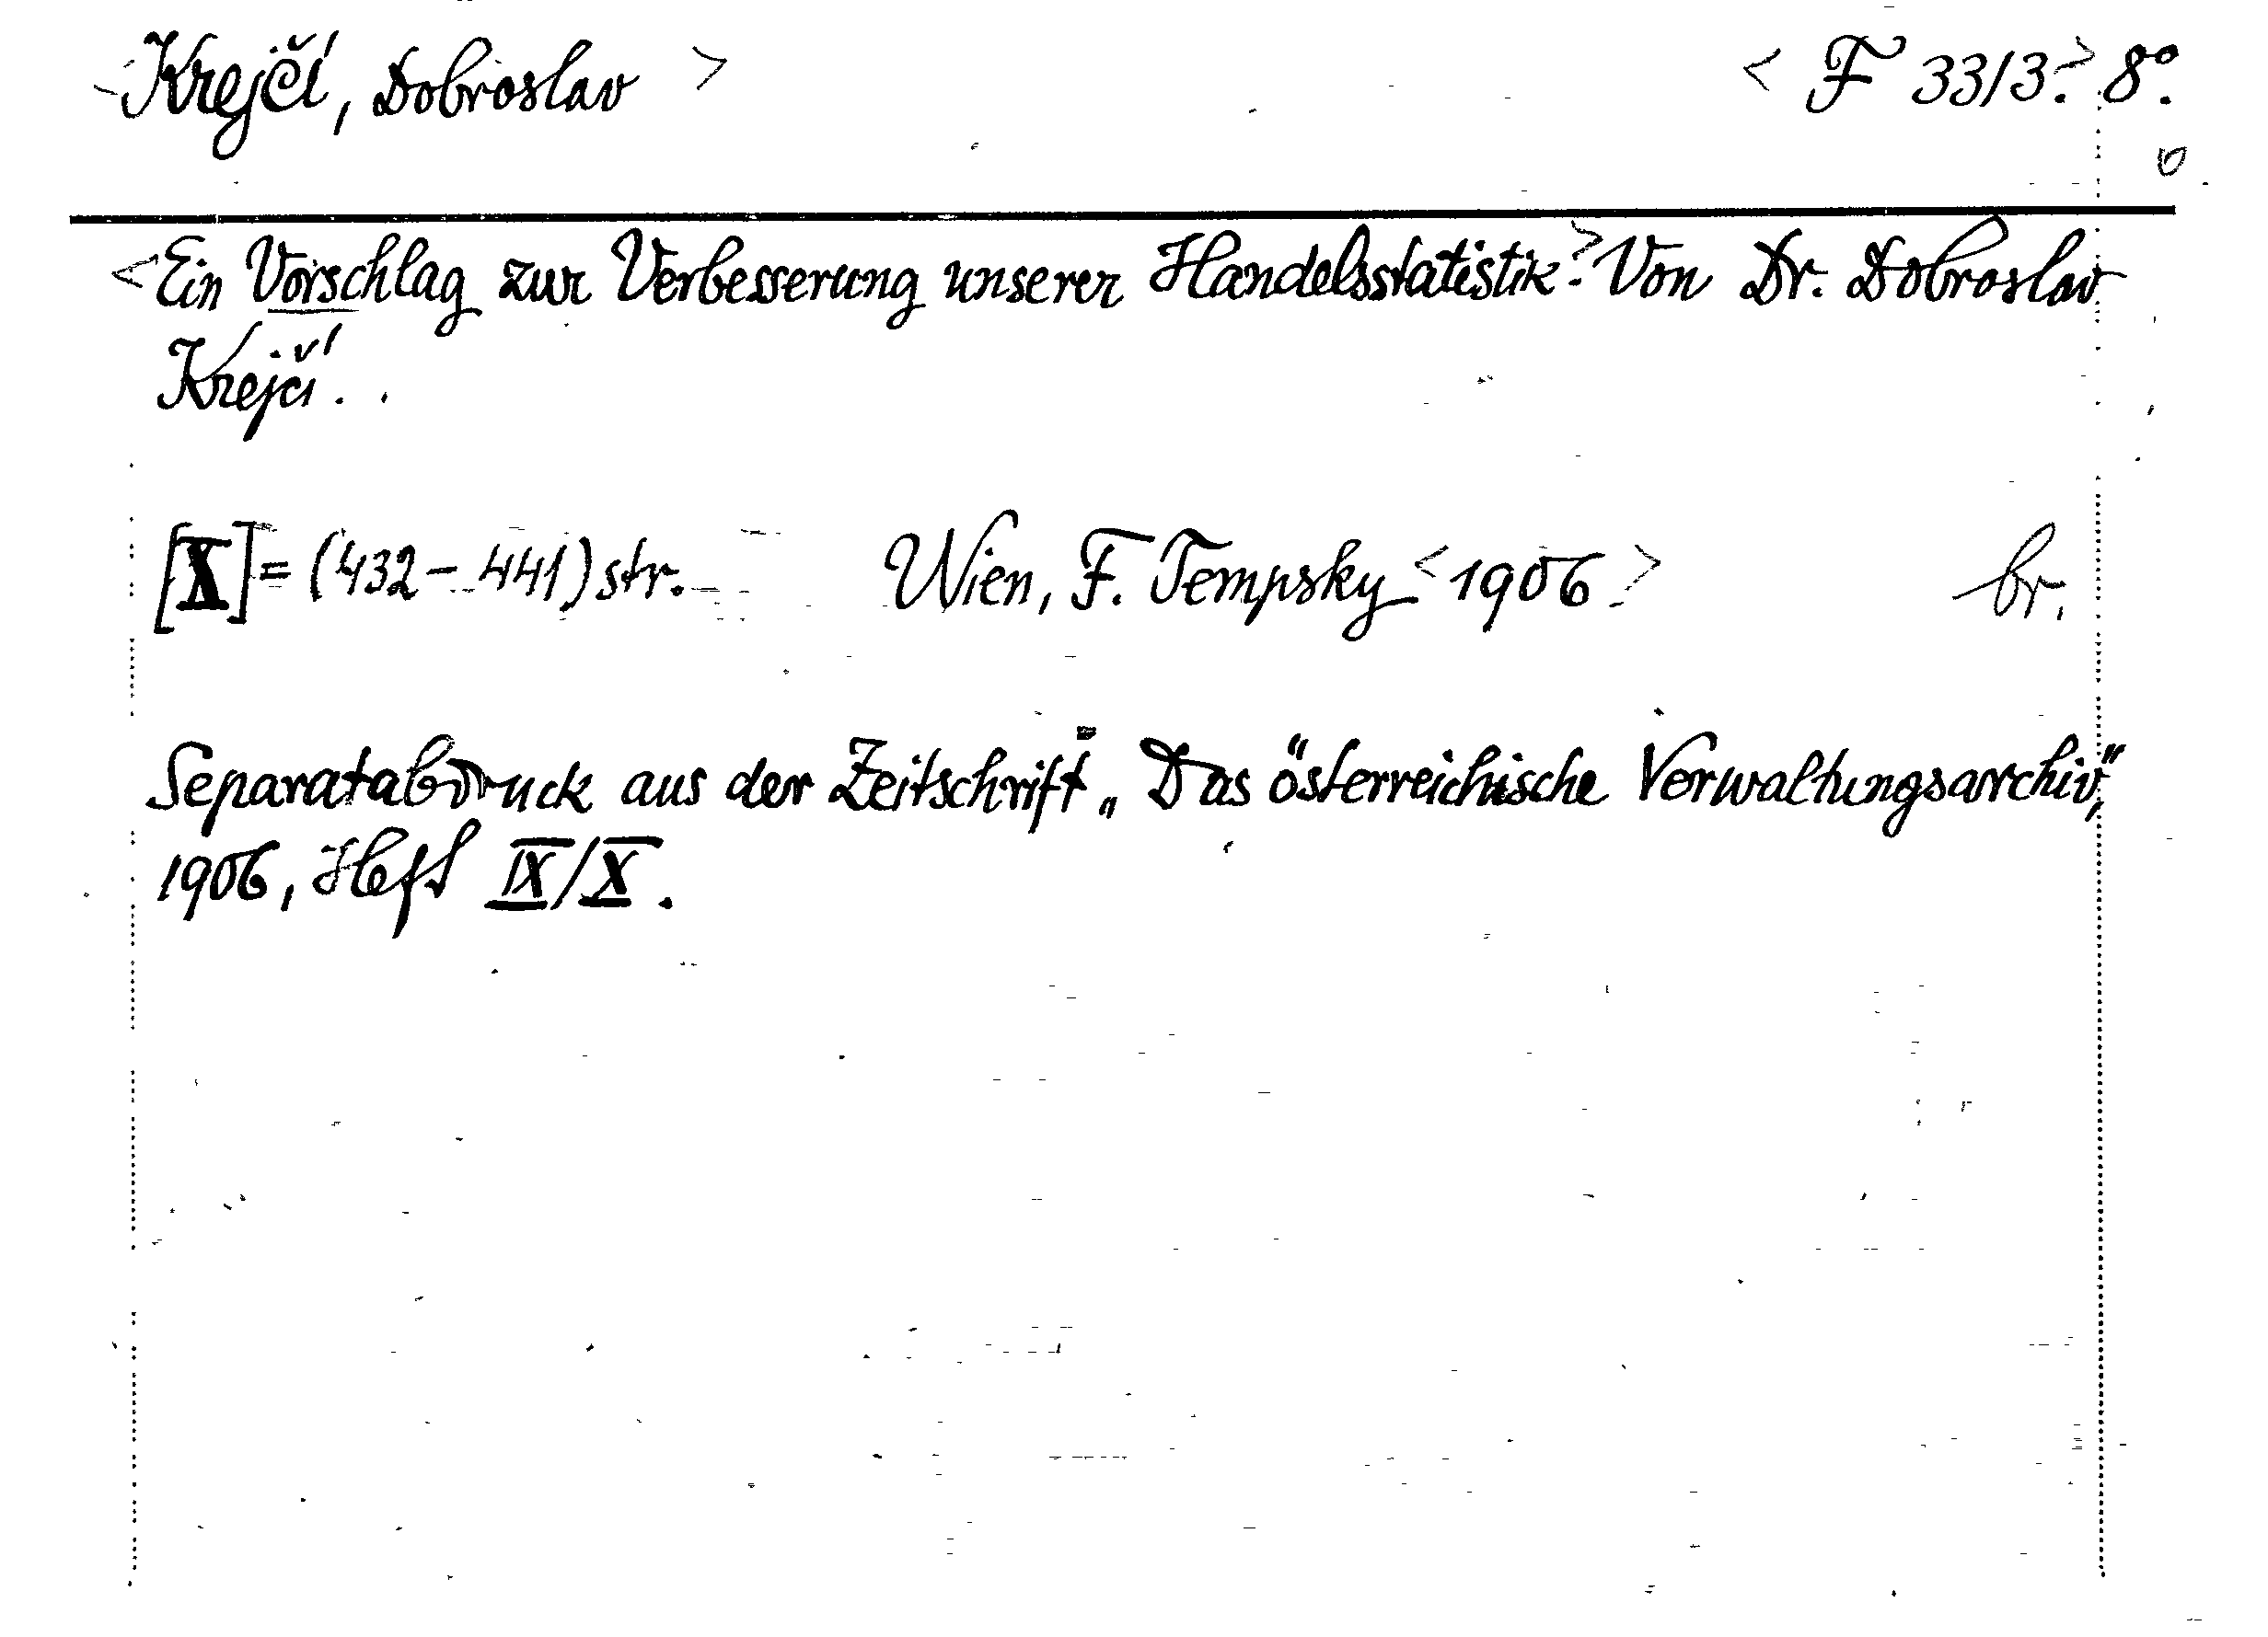 <Krejčí, Dobroslav> <F 33/3.> 8°.
<Ein Vorschlag zur Verbesserung unserer Handelsstatistik.> Von Dr. Dobroslav
Krejčí.
[X] = (432 - 441) str. Wien, F. Tempsky <1906> br.
Separatabdruck aus der Zeitschrift „Das österreichische Verwaltungsarchiv",
1906, Heft IX/X.